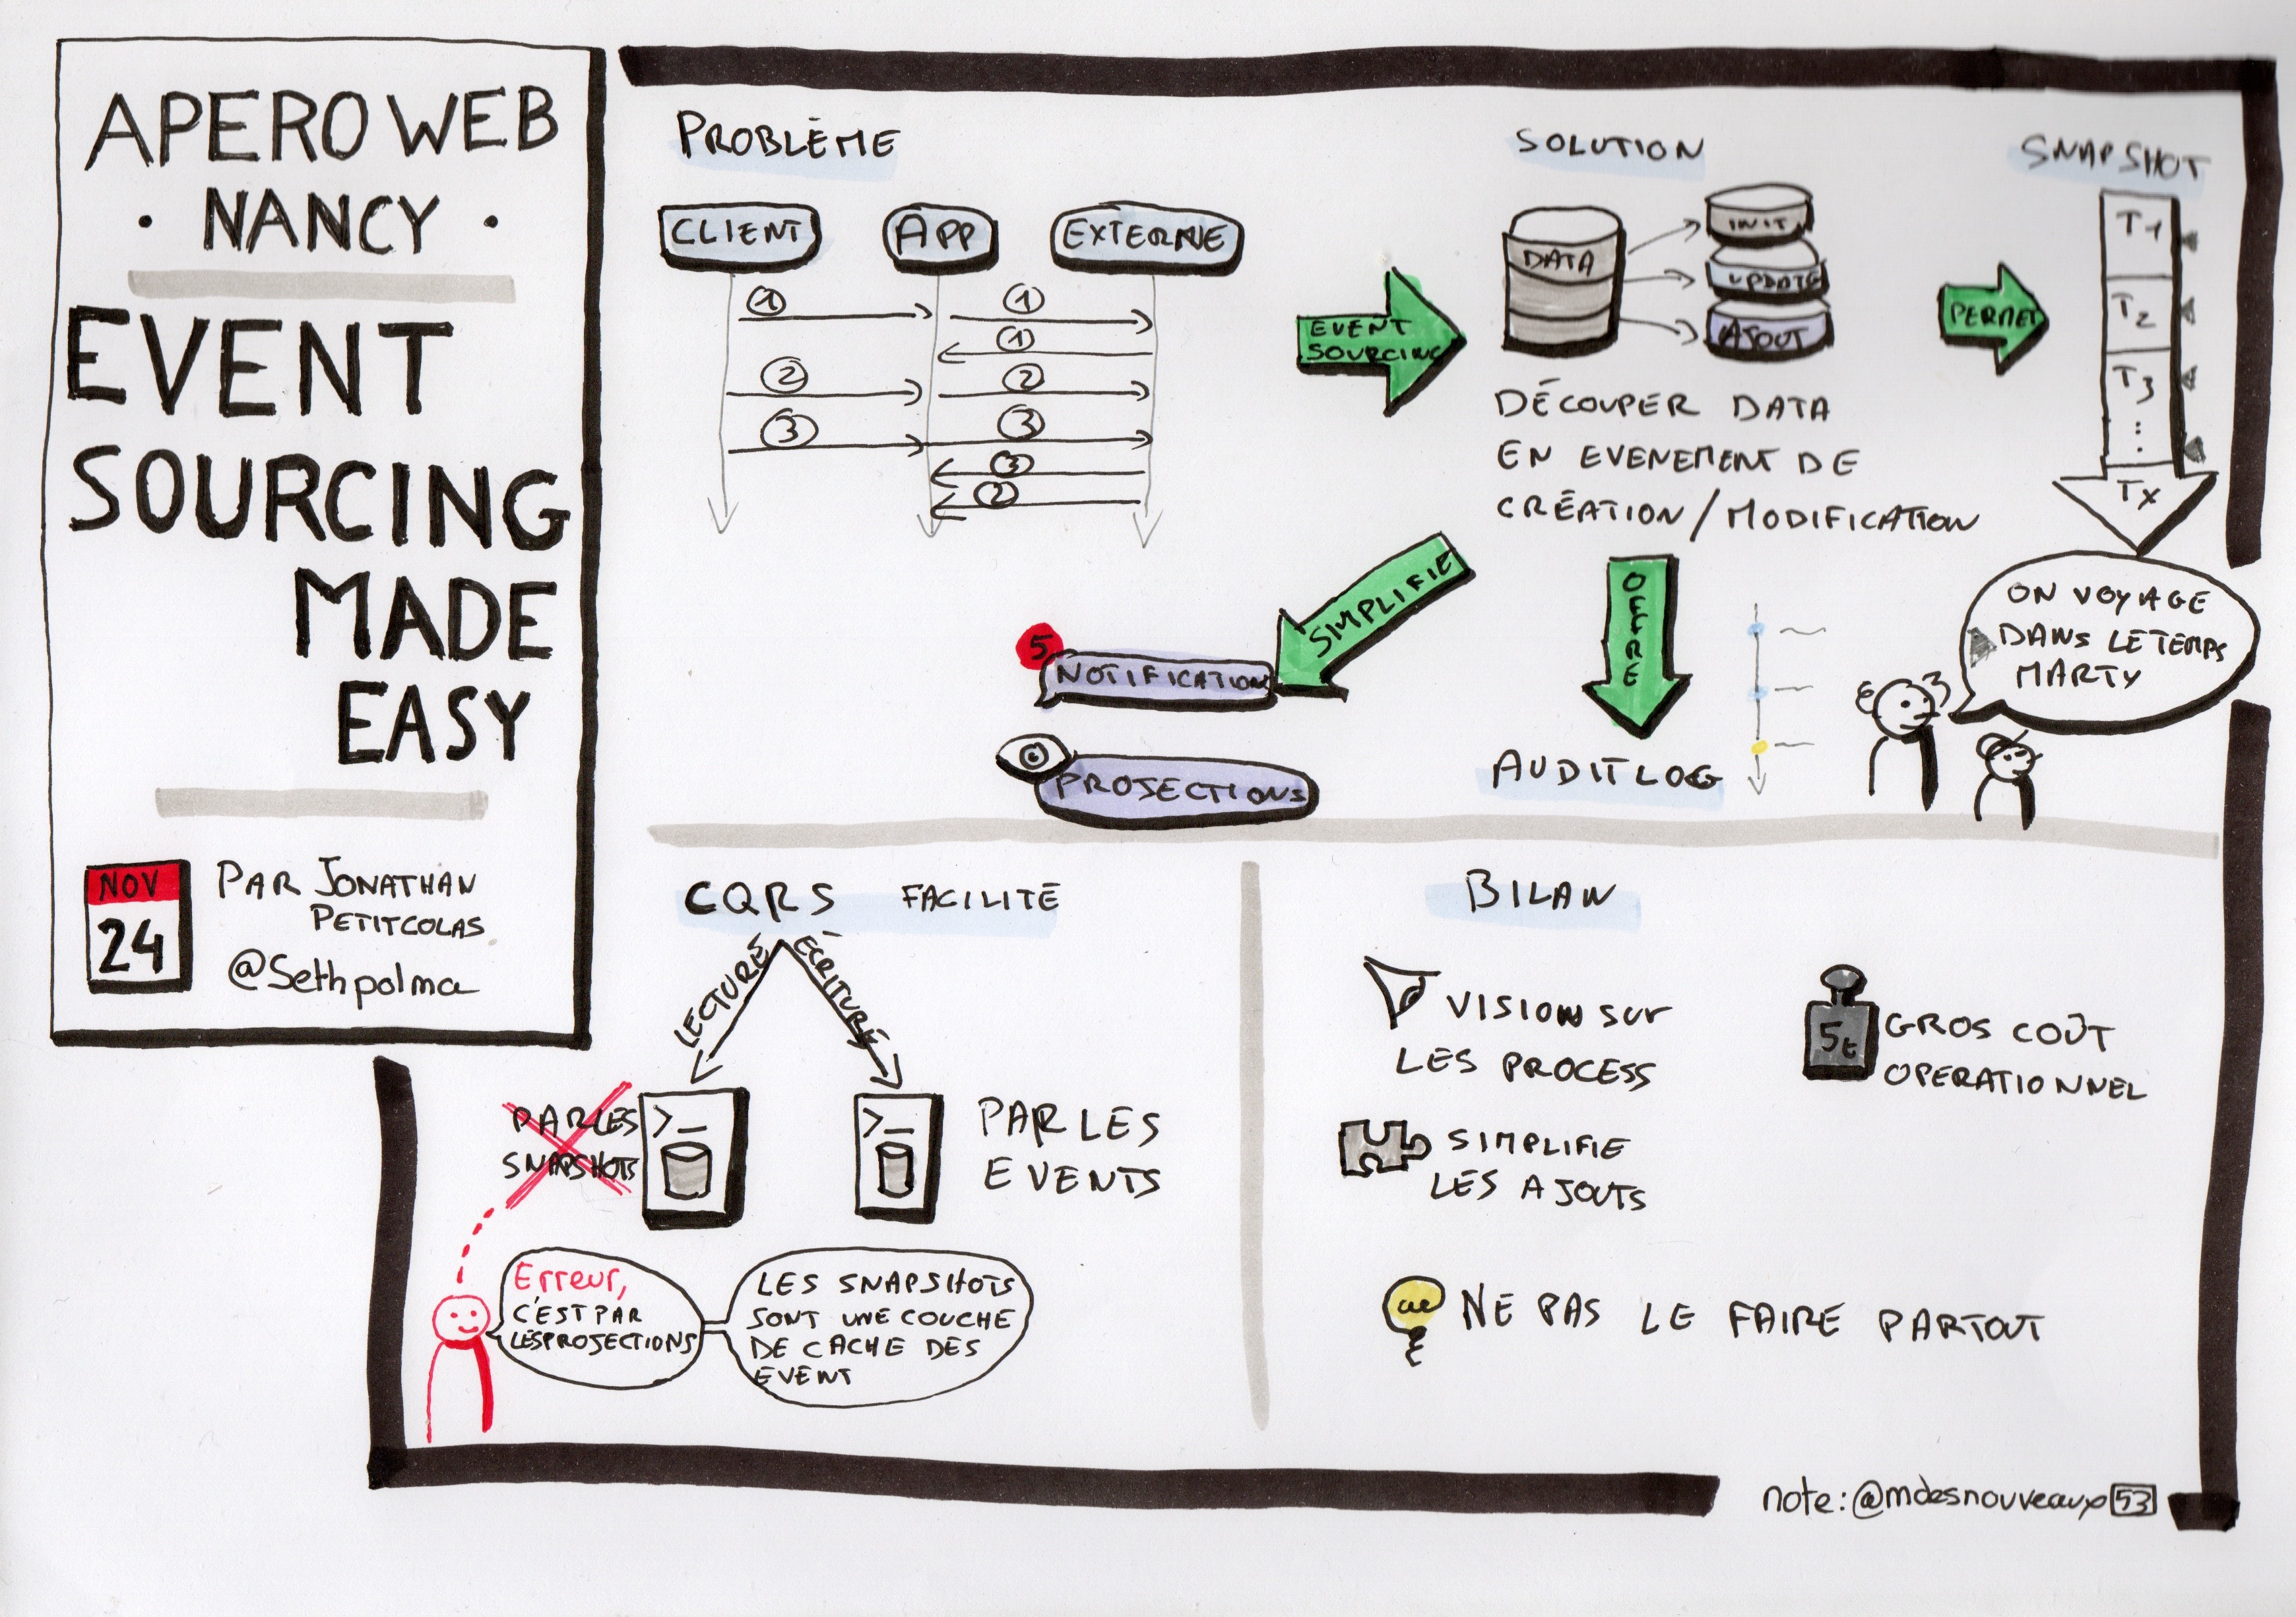 APERO WEB
· NANCY ·
EVENT
SOURCING
MADE
EASY
NOV
24
PAR JONATHAN
PETITCOLAS
@Sethpolma
PROBLÈME
CLIENT
APP
EXTERNE
1
1
1
2
2
3
3
3
2
EVENT
SOURCING
SOLUTION
DATA
INIT
UPDATE
AJOUT
DÉCOUPER DATA
EN EVENEMENT DE
CRÉATION/MODIFICATION
PERMET
SNAPSHOT
T1
T2
T3
...
TX
ON VOYAGE
DANS LE TEMPS
MARTY
SIMPLIFIE
5
NOTIFICATION
PROJECTIONS
OFFRE
AUDIT LOG
CQRS FACILITÉ
LECTURE
ÉCRITURE
PAR LES
SNAPSHOTS
>_
>_
PAR LES
EVENTS
Erreur,
C'EST PAR
LES PROJECTIONS
LES SNAPSHOTS
SONT UNE COUCHE
DE CACHE DES
EVENT
BILAN
VISION SUR
LES PROCESS
5t
GROS COÛT
OPERATIONNEL
SIMPLIFIE
LES AJOUTS
NE PAS LE FAIRE PARTOUT
note: @mdesnouveaux 53